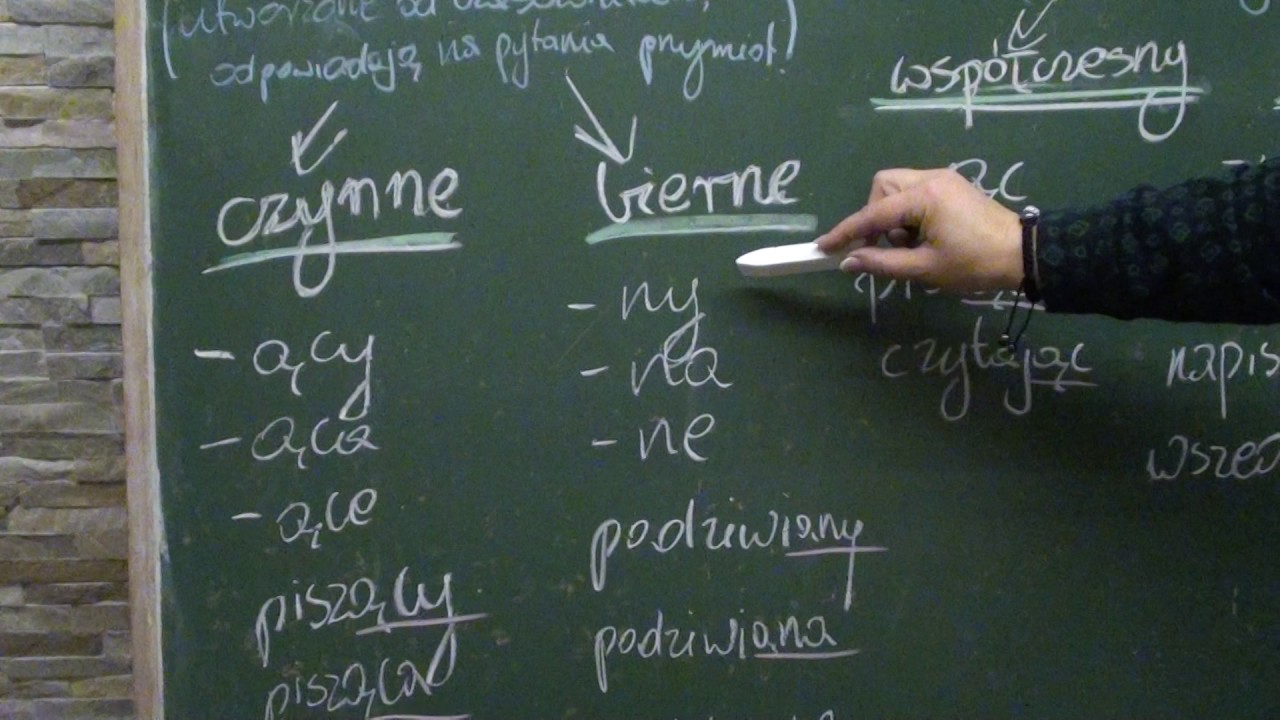 (utworzone od czasowników,
odpowiadają na pytania przymiot.)
czynne
- ący
- ąca
- ące
piszący
pisząca
bierne
- ny
- na
- ne
podziwiany
podziwiana
współczesny
ąc
czytając
napis
wszed